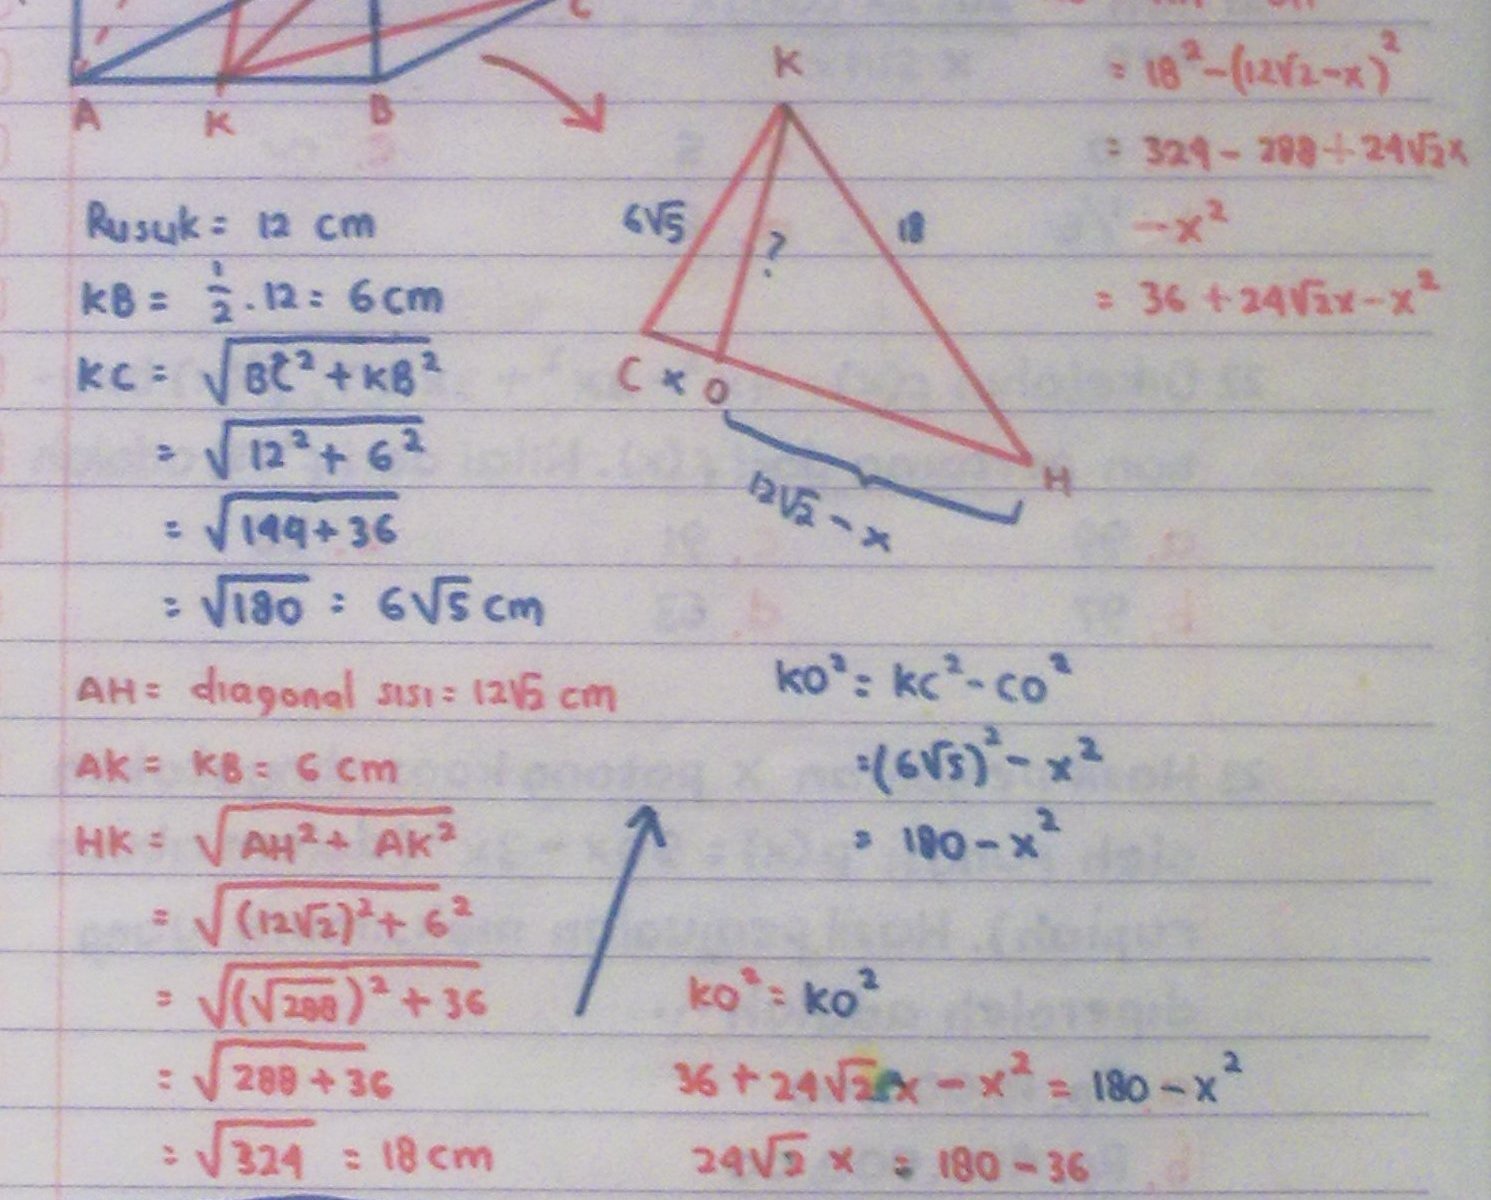 C
A K B
K
6√5 ? 18
C x O
H
12√2 - x
= 18² - (12√2 - x)²
= 324 - 288 + 24√2x
- x²
= 36 + 24√2x - x²
Rusuk = 12 cm
KB = 1/2 . 12 = 6 cm
KC = √(BC² + KB²)
= √(12² + 6²)
= √(144 + 36)
= √180 = 6√5 cm
AH = diagonal sisi = 12√2 cm
AK = KB = 6 cm
HK = √(AH² + AK²)
= √((12√2)² + 6²)
= √((√288)² + 36)
= √(288 + 36)
= √324 = 18 cm
KO² = KC² - CO²
= (6√5)² - x²
= 180 - x²
KO² = KO²
36 + 24√2x - x² = 180 - x²
24√2 x = 180 - 36